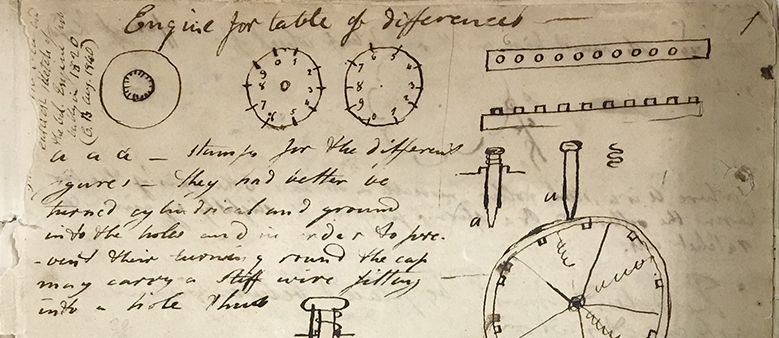 Engine for table of differences
1
earliest sketch of
the Cal. Engine
made in 1820
(C. B. Aug. 1840)
0 1 2 3 4 5 6 7 8 9
5 4 3 2 1 0 9 8 7 6
a a a — stamps for the different
figures — they had better be
turned cylindrical and ground
into the holes and in order to pre-
-vent their turning round the cap
may carry a stiff wire fitting
into a hole thus
a
a